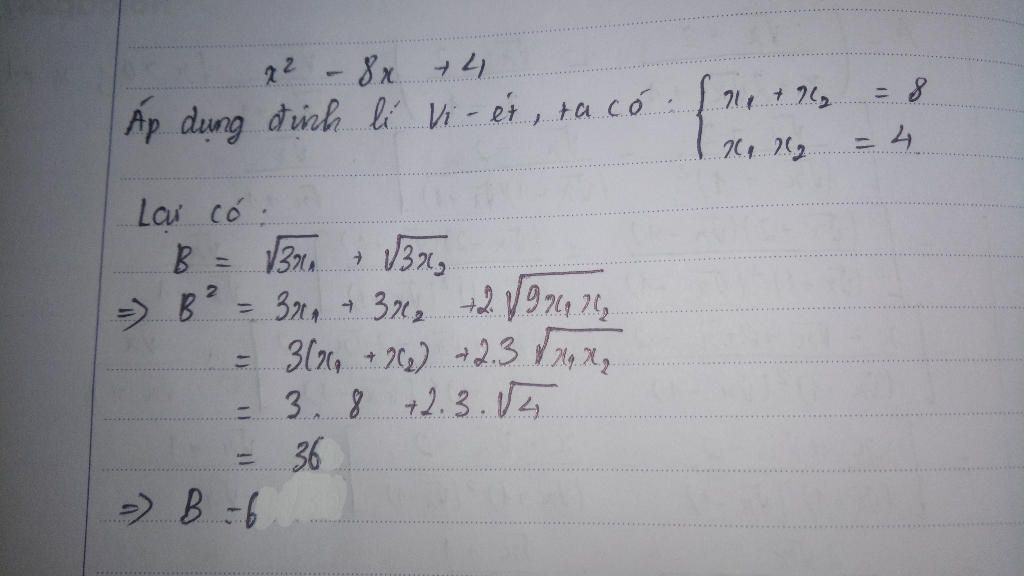 x² - 8x + 4
Áp dụng định lí Vi-ét, ta có : { x₁ + x₂ = 8
x₁ x₂ = 4
Lại có :
B = √3x₁ + √3x₂
=> B² = 3x₁ + 3x₂ + 2.√9x₁x₂
= 3(x₁ + x₂) + 2.3 √x₁x₂
= 3 . 8 + 2.3.√4
= 36
=> B = 6